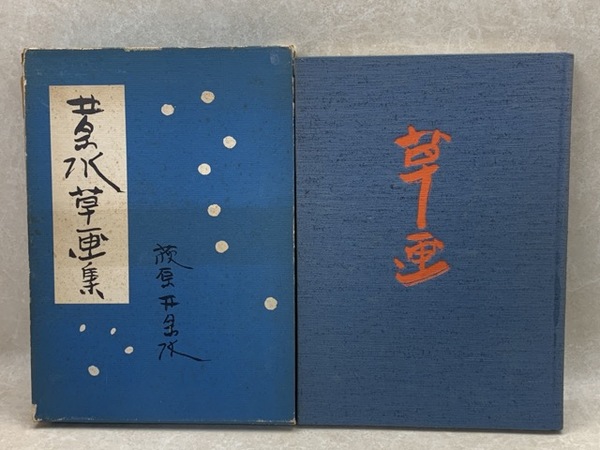 井泉水草画集
荻原井泉水
草画